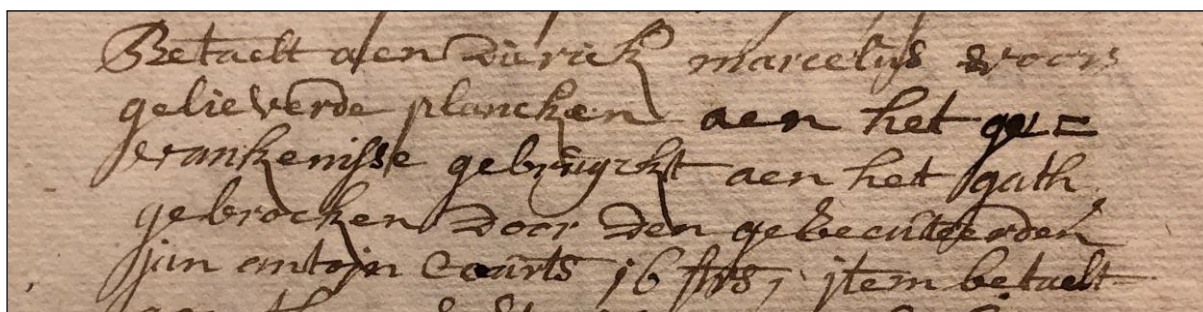 Betaelt aen Dierick marcelijs voor
gelieverde plancken aen het ge=
vankenisse gebruyckt aen het gath
gebrocken door den geexecuteerden
jan antoijn Coarts 16 strs, jtem betaelt